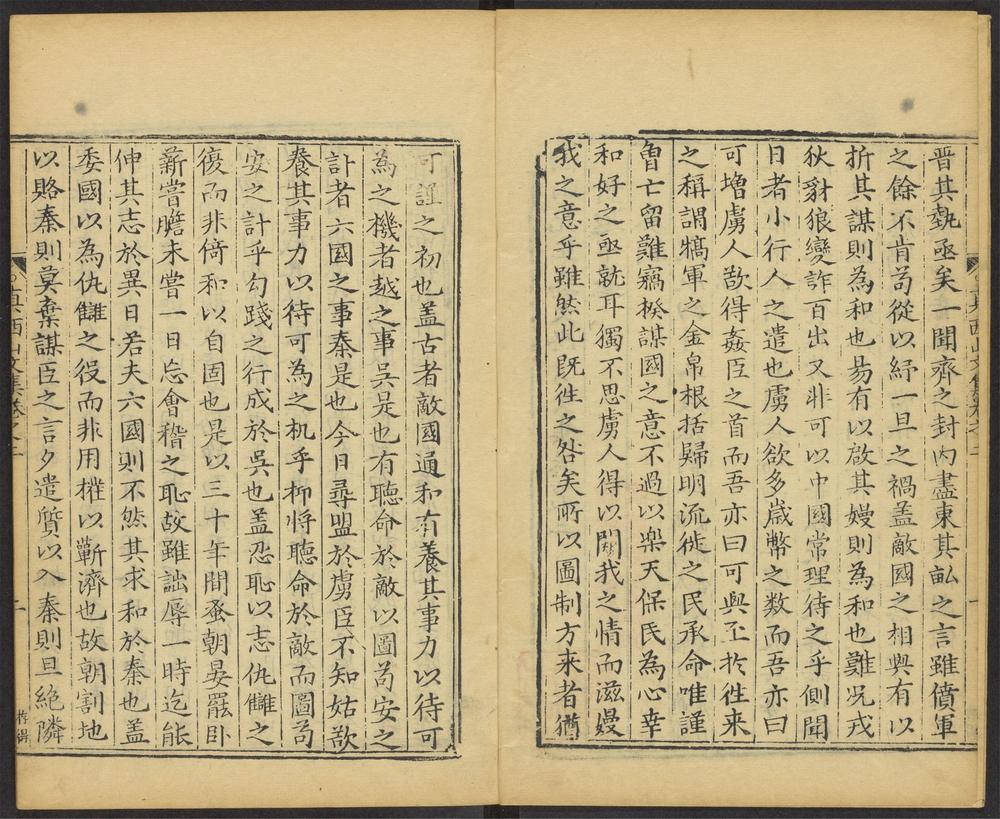 晉其埶亟矣一聞齊之封内盡東其畝之言雖僨軍
之餘不肯苟從以紓一旦之禍盖敵國之相與有以
折其謀則為和也易有以啟其嫚則為和也難况戎
狄豺狼變詐百出又非可以中國常理待之乎側聞
日者小行人之遣也虜人欲多嵗幣之数而吾亦曰
可増虜人欲得姦臣之首而吾亦曰可與至扵徃来
之稱謂犒軍之金帛根括歸明流徙之民承命唯謹
曽亡留難竊揆謀國之意不過以樂天保民為心幸
和好之亟就耳獨不思虜人得以闚我之情而滋嫚
我之意乎雖然此既徃之咎矣所以圖制方来者猶
可謹之初也盖古者敵國通和有養其事力以待可
為之機者越之事吳是也有聴命於敵以圖苟安之
計者六國之事秦是也今日尋盟於虜臣不知姑欲
養其事力以待可為之机乎抑将聴命於敵而圖苟
安之計乎勾踐之行成於吳也盖忍恥以志仇讎之
復而非倚和以自固也是以三十年間蚤朝晏罷卧
薪嘗膽未嘗一日忘會稽之恥故雖詘辱一時迄能
伸其志於異日若夫六國則不然其求和於秦也盖
委國以為仇讎之役而非用權以蘄濟也故朝割地
以賂秦則莫棄謀臣之言夕遣質以入秦則旦絶隣
真西山文集卷之二
真西山文集卷之二
一
二